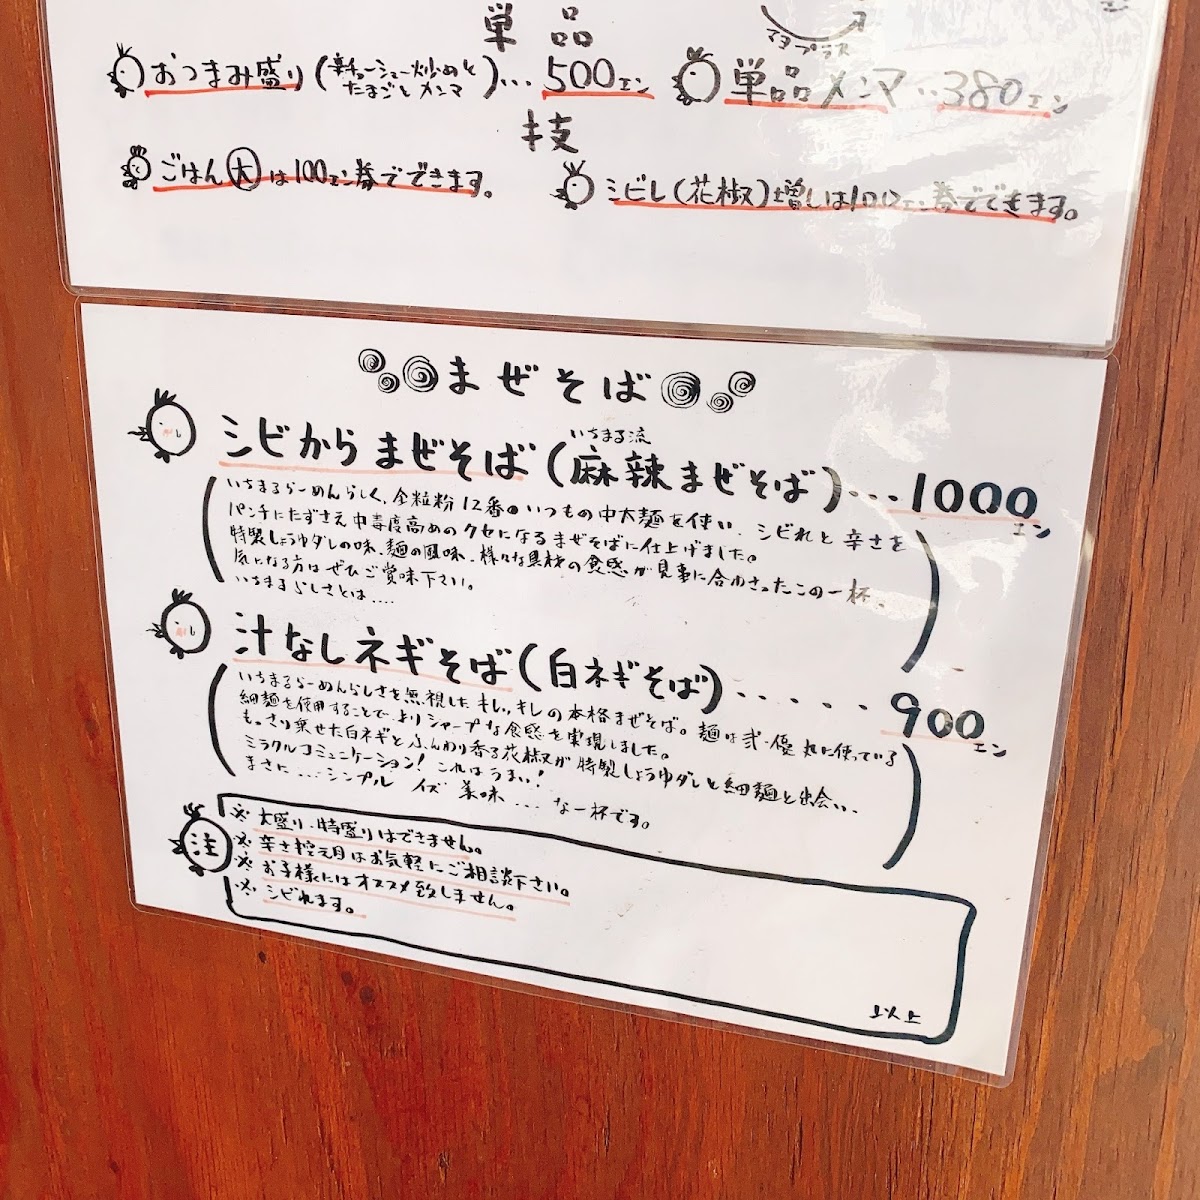 マヨプラス
単品
おつまみ盛り(辛チャーシュー炒めとたまごとメンマ)… 500エン
単品メンマ‥380エン
技
ごはん大は100エン券でできます。
シビレ(花椒)増しは100エン券でできます。
まぜそば
いちまる流
シビから まぜそば(麻辣まぜそば)…1000エン
いちまるらーめんらしく、全粒粉12番のいつもの中太麺を使い、シビれと辛さを
パンチにたずさえ中毒度高めのクセになるまぜそばに仕上げました。
特製しょうゆダレの味、麺の風味、様々な具材の食感が見事に合わさったこの一杯、
気になる方はぜひご賞味下さい。
いちまるらしさとは....
汁なしネギそば(白ネギそば)・・・・・900エン
いちまるらーめんらしさを無視した、キレッキレの本格まぜそば。麺は弐・優丸に使っている
細麺を使用することで、よりシャープな食感を実現しました。
もっさり乗せた白ネギと、ふんわり香る花椒が特製しょうゆダレと細麺と出会い、
ミラクルコミュニケーション!これはうまい!
まさに...シンプル イズ 美味 ...な一杯です。
注
※大盛り・特盛りはできません。
※辛さ控え目はお気軽にご相談下さい。
※お子様にはオススメ致しません。
※シビれます。
以上